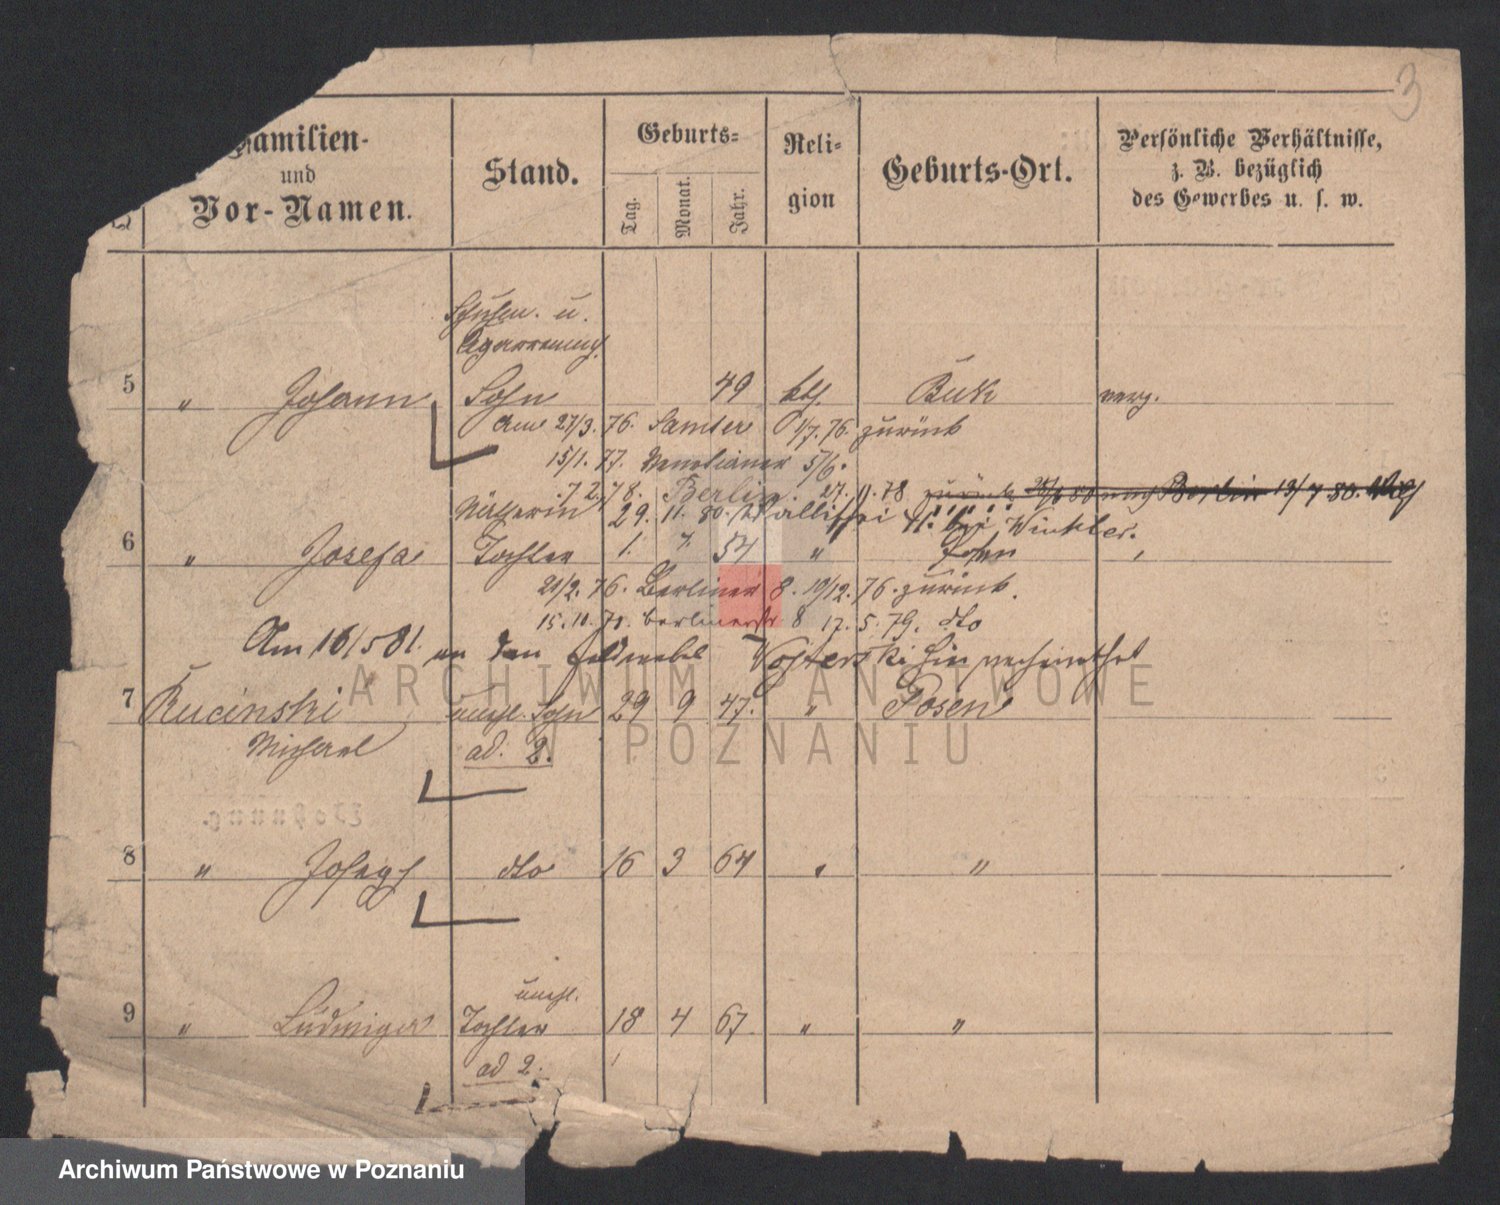 3
Familien-
und
Vor-Namen.
Stand.
Geburts-
Tag.
Monat.
Jahr.
Reli-
gion
Geburts-Ort.
Persönliche Verhältnisse,
z. B. bezüglich
des Gewerbes u. s. w.
u.
5 " Johann Sohn 49 kth Buk
27/3. 76. Samter 1/7. 76. zurück
15/1. 77. Venetianer 5/6.
7 2. 78. Berlin. 27. 11. 78 zurück Berlin 13/7 80.
Näherin 29. 11. 80. Wallischei bei Winkler.
6 " Josefa Tochter 1. 7 54 " Posen
21/2. 76. Berliner 8. 19/12. 76. zurück.
15. 10. 78. Berlinerstr 8 17. 5. 79. dto
Am 16/5 81. an den Feldwebel hier verheirathet
7 Rucinski unehl. Sohn 29 9 47. " Posen
Michael ad. 2.
8 " Joseph dto 16 3 64 " "
unehl.
9 " Ludwiga Tochter 18 4 67 " "
ad 2.
ARCHIWUM PAŃSTWOWE
W POZNANIU
Archiwum Państwowe w Poznaniu